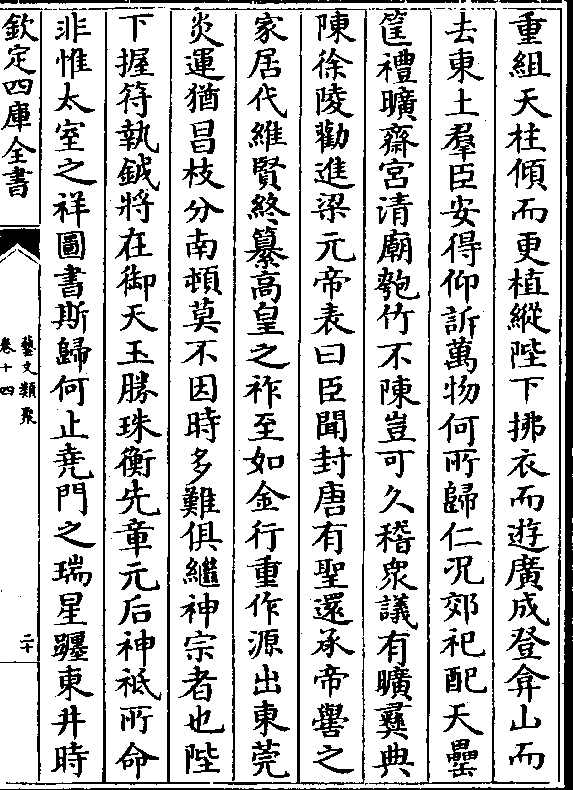 重組天柱傾而更植縱陛下拂衣而遊廣成登弇山而
去東土羣臣安得仰訴萬物何所歸仁况郊祀配天罍
筐禮曠齋宮清廟匏竹不陳豈可久稽衆議有曠彞典
陳徐陵勸進梁元帝表曰臣聞封唐有聖還承帝嚳之
家居代維賢終纂高皇之祚至如金行重作源出東莞
炎運猶昌枝分南頓莫不因時多難俱繼神宗者也陛
下握符執鉞將在御天玉勝珠衡先章元后神祗所命
非惟太室之祥圖書斯歸何止堯門之瑞星躔東井時
欽定四庫全書
藝文類聚
卷十四
二十